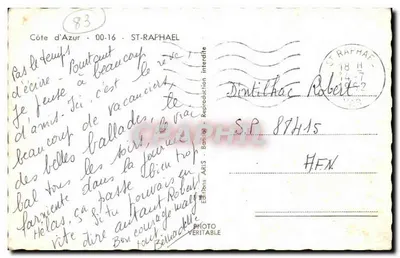 83
Côte d'Azur - 00-16 - ST-RAPHAEL
Pas le temps
d'écrire. Pourtant
Je pense à beaucoup
d'amis. Ici, c'est le rêve !
beaucoup de vacanciers,
des belles ballades, le
bal tous les soirs, le vrai
farniente dans la journée
Hélas, ça passe bien trop
vite si tu pouvais en
dire autant Robert
Bon courage malgré
tout.
Editions ARIS - Bandol - Reproduction interdite
PHOTO
VERITABLE
ST RAPHAEL
18 H
Dintilhac Robert
S.P. 87415
AFN